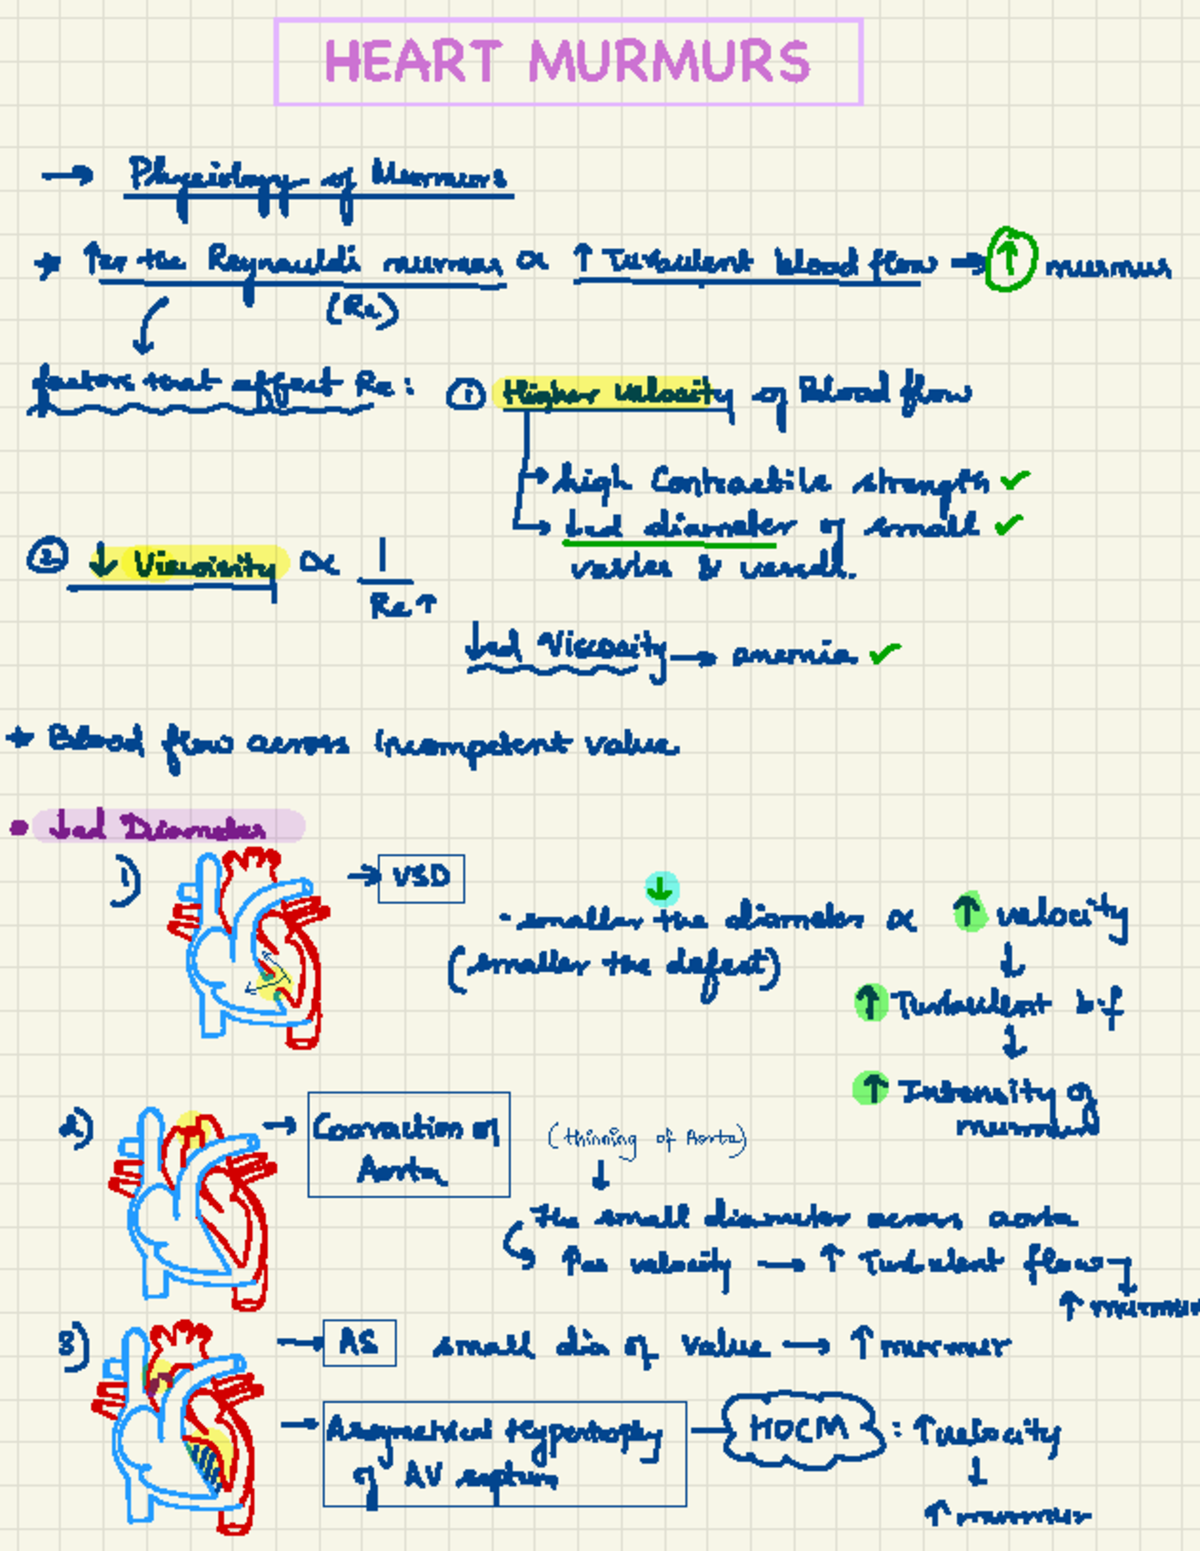 HEART MURMURS
→ Physiology of Murmurs
* ↑es the Reynauldi murmurs ∝ ↑ Turbulent blood flow → ↑ murmurs
(Re)
factors that affect Re: ① Higher velocity of Blood flow
→ high Contractile strength ✓
→ ↓ed diameter of small ✓
valves & vessell.
② ↓ Viscosity ∝ 1
Re↑
↓ed Viscosity → anemia ✓
* Blood flow across Incompetent value
• ↓ed Diameter
1) → VSD
↓
- smaller the diameter ∝ ↑ velocity
(smaller the defect)
↓
↑ Turbulent b·f
↓
↑ Intensity of
murmur
2) → Coarvaction of (thinning of Aorta)
Aorta
↓
The small diameter across aorta
↑es velocity → ↑ Turbulent flow
↑ murmur
3) → AS small dia of value → ↑ murmur
→ Assymetrical Hypertrophy — HOCM : ↑ velocity
of AV septum
↓
↑ murmur